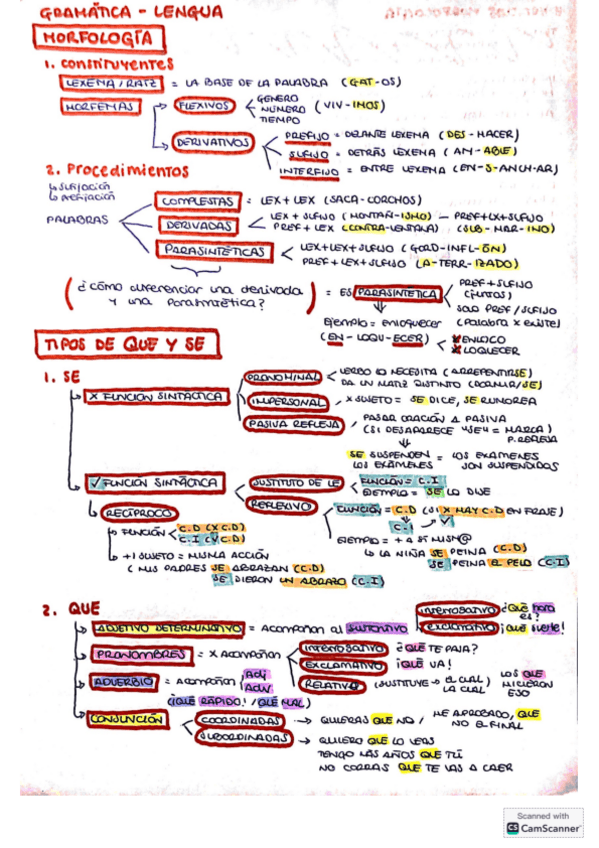 GRAMÁTICA - LENGUA
MORFOLOGÍA
1. Constituyentes
LEXEMA / RAÍZ = LA BASE DE LA PALABRA (GAT-OS)
MORFEMAS
FLEXIVOS
GENERO
NUMERO (VIV-IMOS)
TIEMPO
DERIVATIVOS
PREFIJO = DELANTE LEXEMA (DES-HACER)
SUFIJO = DETRÁS LEXEMA (AM-ABLE)
INTERFIJO = ENTRE LEXEMA (EN-S-ANCH-AR)
2. Procedimientos
↳ Sufijación
↳ Prefijación
PALABRAS
COMPUESTAS = LEX + LEX (SACA-CORCHOS)
DERIVADAS
LEX + SUFIJO (MONTAÑ-ISMO) — PREF+LX+SUFIJO
PREF + LEX (CONTRA-VENTANA) (SUB-MAR-INO)
PARASINTÉTICAS
LEX+LEX+SUFIJO (GORD-INFL-ÓN)
PREF+LEX+SUFIJO (A-TERR-IZADO)
¿cómo diferenciar una derivada
y una Parasintética?
= ES PARASINTETICA
PREF + SUFIJO
(juntos)
SOLO PREF / SUFIJO
(Palabra x existe)
Ejemplo = enloquecer
(EN-LOQU-ECER)
X ENLOCO
X LOQUECER
TIPOS DE QUE Y SE
1. SE
X FUNCION SINTÁCTICA
PRONOMINAL
VERBO LO NECESITA (ARREPENTIRSE)
DA UN MATIZ DISTINTO (DORMIR/SE)
IMPERSONAL, X SUJETO = SE DICE, SE RUMOREA
PASIVA REFLEJA
PASAR ORACIÓN A PASIVA
(SI DESAPARECE "SE" = MARCA)
P. REFLEJA
SE SUSPENDEN = LOS EXÁMENES
LOS EXÁMENES SON SUSPENDIDOS
✓ FUNCIÓN SINTÁCTICA
SUSTITUTO DE LE
FUNCIÓN = C.I
EJEMPLO = SE LO DIJE
REFLEXIVO
FUNCIÓN = C.D (SI X HAY C.D EN FRASE)
C.I ✓
EJEMPLO = + A SÍ MISM@
↳ LA NIÑA SE PEINA (C.D)
SE PEINA EL PELO (C.I)
RECÍPROCO
↳ FUNCIÓN
C.D (X C.D)
C.I (✓ C.D)
↳ +1 SUJETO = MISMA ACCIÓN
(MIS PADRES SE ABRAZAN (C.D)
SE DIERON UN ABRAZO (C.I)
2. QUE
ADJETIVO DETERMINATIVO = Acompañan al SUSTANTIVO
INTERROSATIVO ¿QUÉ hora es?
EXCLAMATIVO ¡QUÉ suerte!
PRONOMBRES = X Acompañan
INTERROSATIVO ¿QUÉ TE PASA?
EXCLAMATIVO ¡QUÉ VA!
RELATIVO (SUSTITUYE → EL CUAL
LA CUAL
LOS QUE
HICIERON
ESO
ADVERBIO = acompañan
Adj
Adv
(¡QUÉ RÁPIDO! / QUÉ MAL)
CONJUNCIÓN
COORDINADAS → QUIERAS QUE NO / HE APROBADO, QUE
NO EL FINAL
SUBORDINADAS → QUIERO QUE LO VEAS
TENGO LAS AÑOS QUE TÚ
NO CORRAS QUE TE VAS A CAER
Scanned with
CS CamScanner